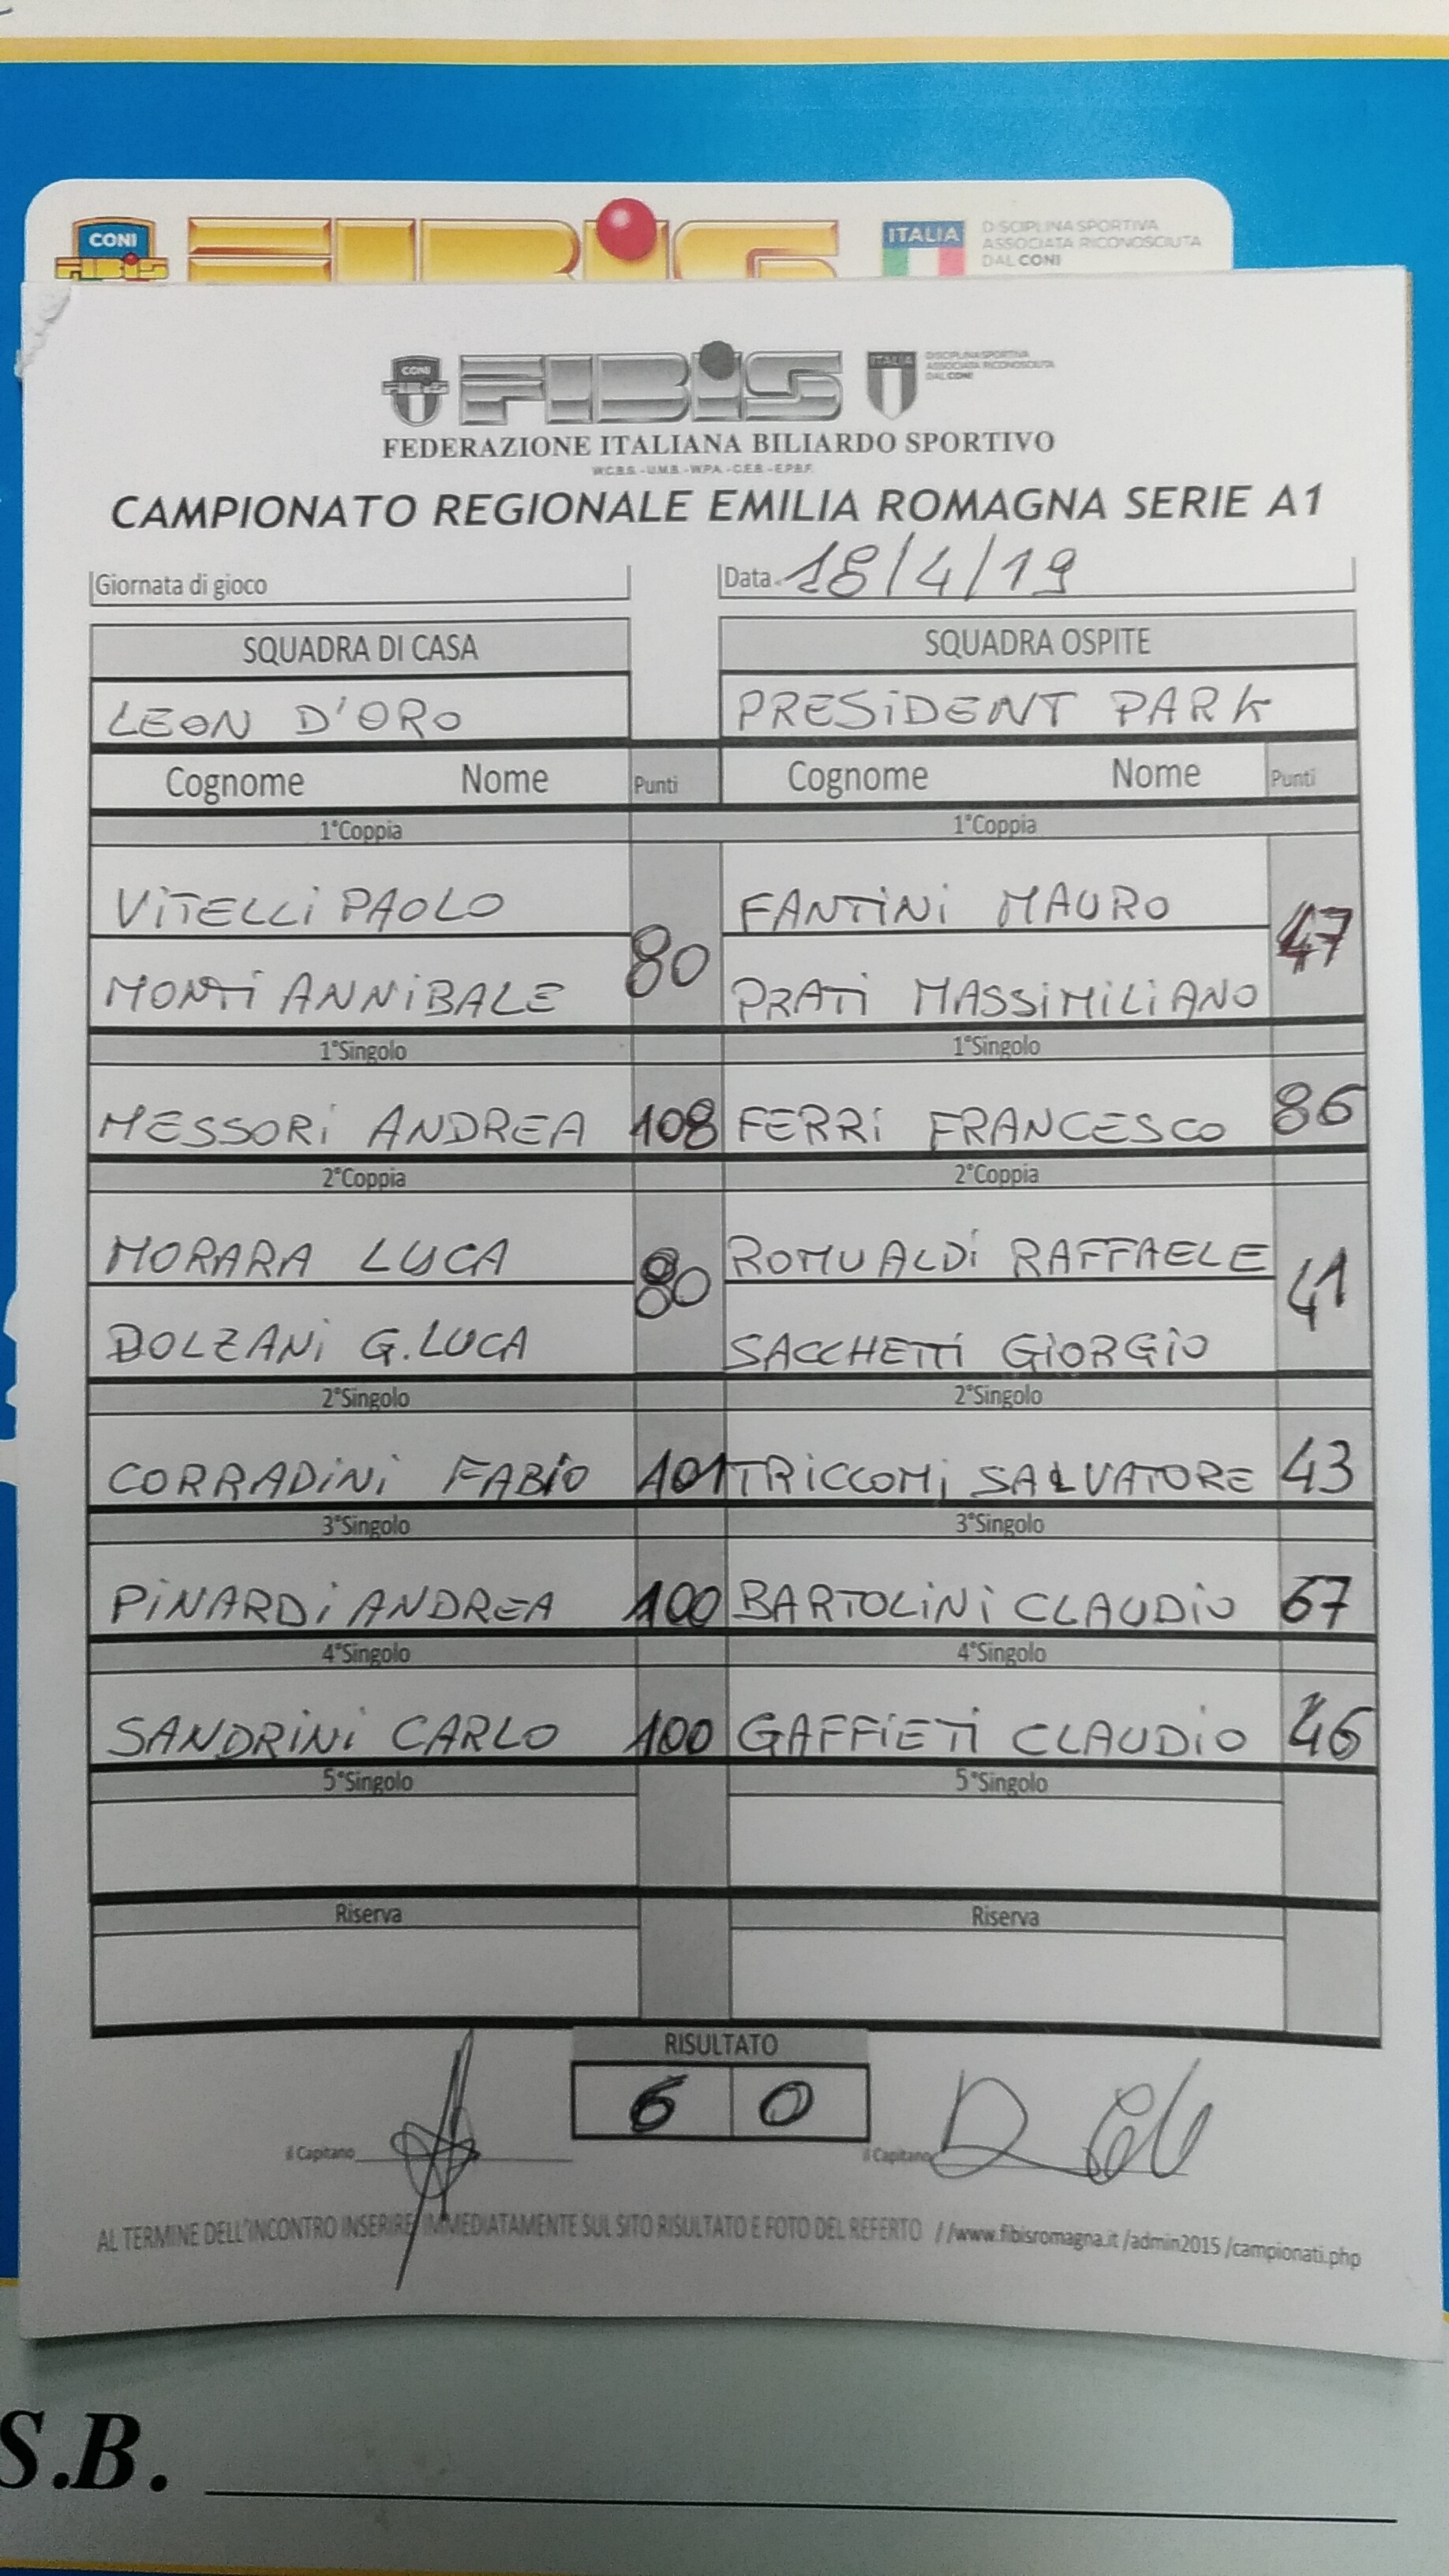 CONI
FIBiS
ITALIA
DISCIPLINA SPORTIVA
ASSOCIATA RICONOSCIUTA
DAL CONI
CONI
FIBiS
ITALIA
DISCIPLINA SPORTIVA
ASSOCIATA RICONOSCIUTA
DAL CONI
FEDERAZIONE ITALIANA BILIARDO SPORTIVO
W.C.B.S. - U.M.B. - W.P.A. - C.E.B. - E.P.B.F.
CAMPIONATO REGIONALE EMILIA ROMAGNA SERIE A1
Giornata di gioco Data 18/4/19
SQUADRA DI CASA SQUADRA OSPITE
LEON D'ORO PRESiDENT PARK
Cognome Nome Punti Cognome Nome Punti
1°Coppia 1°Coppia
ViTELLi PAOLO FANTiNi MAURO
80 47
MONTi ANNiBALE PRATi MASSiMiLiANO
1°Singolo 1°Singolo
MESSORi ANDREA 108 FERRi FRANCESCO 86
2°Coppia 2°Coppia
MORARA LUCA ROMUALDi RAFFAELE
80 41
BOLZANi G.LUCA SACCHETTi GiORGiO
2°Singolo 2°Singolo
CORRADiNi FABiO 101 TRiCCOMi SALVATORE 43
3°Singolo 3°Singolo
PiNARDi ANDREA 100 BARTOLiNi CLAUDiO 67
4°Singolo 4°Singolo
SANDRiNi CARLO 100 GAFFiETi CLAUDiO 46
5°Singolo 5°Singolo
Riserva Riserva
RISULTATO
6 0
il Capitano il Capitano
AL TERMINE DELL'INCONTRO INSERIRE IMMEDIATAMENTE SUL SITO RISULTATO E FOTO DEL REFERTO //www.fibisromagna.it /admin2015 /campionati.php
S.B.